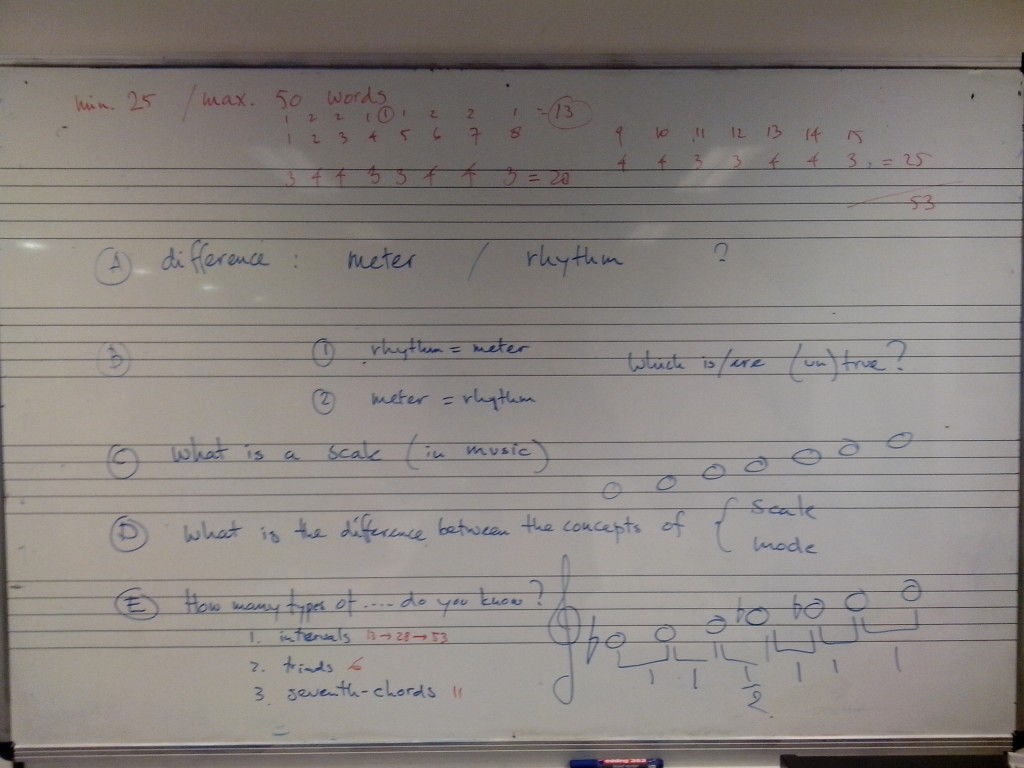 min. 25 / max. 50 words
1 2 2 1 1 1 2 2 1 = 13
1 2 3 4 5 6 7 8 9 10 11 12 13 14 15
3 4 4 3 3 4 4 3 = 28 4 4 3 3 4 4 3 = 25
53
A difference : meter / rhythm ?
B 1 rhythm = meter Which is/are (un)true?
2 meter = rhythm
C What is a scale (in music)
D What is the difference between the concepts of { scale
mode
E How many types of .... do you know?
1. intervals 13 → 28 → 53
2. triads 6
3. seventh-chords 11
1 1 1/2 1 1 1